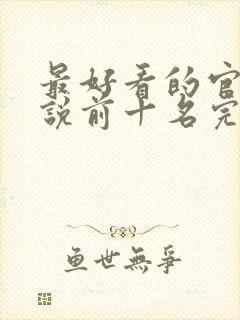 最好看的官
說前十名完
鱼世無爭